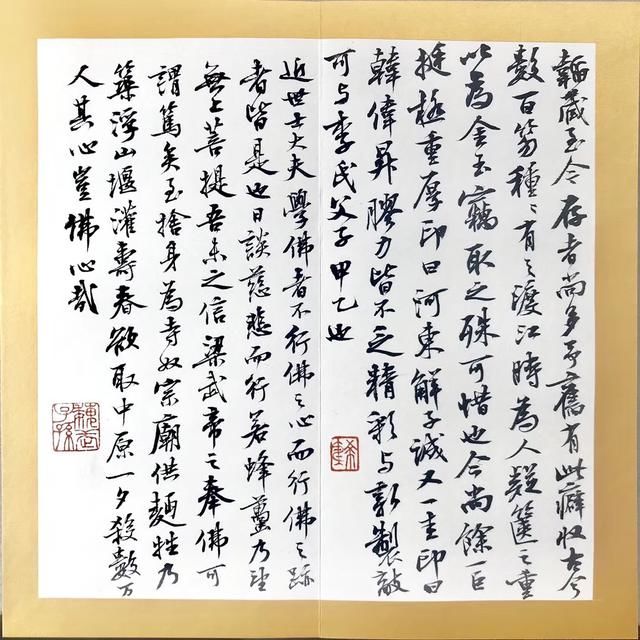 韜藏至今存者尚多予舊有此癖收古今
數百笏種種有之渡江時為人疑篋之重
以為金玉竊取之殊可惜也今尚餘一巨
挺極重厚印曰河東解子誠又一圭印曰
韓偉昇膠力皆不乏精彩与新製敵
可与李氏父子甲乙也
近世士大夫學佛者不行佛之心而行佛之跡
者皆是也日談慈悲而行若蜂蠆乃望
無上菩提吾未之信梁武帝之奉佛可
謂篤矣至捨身為寺奴宗廟供麵牲乃
築浮山堰灌壽春欲取中原一夕殺數万
人其心豈佛心哉